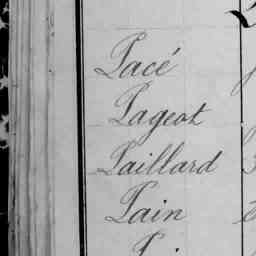 Pacé
Pageot
Paillard
Pain